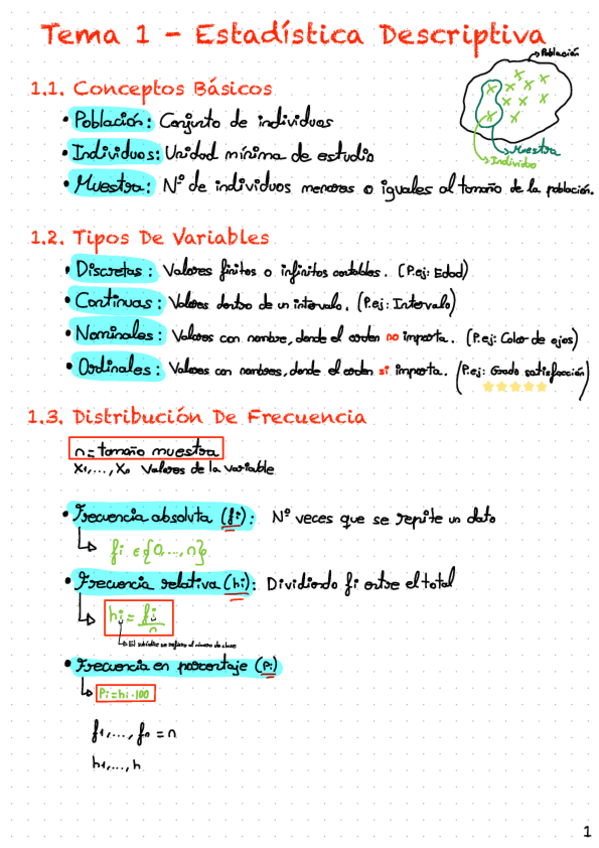 Tema 1 - Estadística Descriptiva
Población
1.1. Conceptos Básicos
• Población: Conjunto de individuos
• Individuos: Unidad mínima de estudio
Muestra
Individuo
• Muestra: Nº de individuos menores o iguales al tamaño de la población.
1.2. Tipos De Variables
• Discretas: Valores finitos o infinitos contables. (P.ej: Edad)
• Continuas: Valores dentro de un intervalo. (P.ej: Intervalo)
• Nominales: Valores con nombre, donde el orden no importa. (P.ej: Color de ojos)
• Ordinales: Valores con nombres, donde el orden sí importa. (P.ej: Grado satisfacción)
1.3. Distribución De Frecuencia
n = tamaño muestra
x1, ..., xn Valores de la variable
• Frecuencia absoluta (fi): Nº veces que se repite un dato
fi ∈ {0, ..., n}
• Frecuencia relativa (hi): Dividiendo fi entre el total
hi = fi/n
El subíndice se refiere al número de clase
• Frecuencia en porcentaje (Pi)
Pi = hi · 100
f1, ..., fn = n
h1, ..., h
1